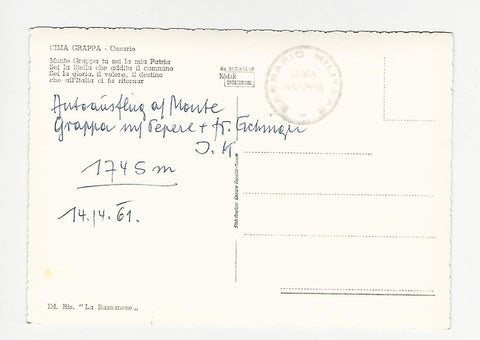 CIMA GRAPPA - Ossario
Monte Grappa tu sei la mia Patria
Sei la Stella che addita il cammino
Sei la gloria, il volere, il destino
che all'Italia ci fa ritornar
Kodak
EKTACHROME
SACRARIO MILITARE
CIMA
GRAPPA
Autoausflug a/ Monte
Grappa m/ Pepere + fr. Eichinger
J. K.
1745 m
14./4. 61.
Ed. Ris. "La Bassanese„